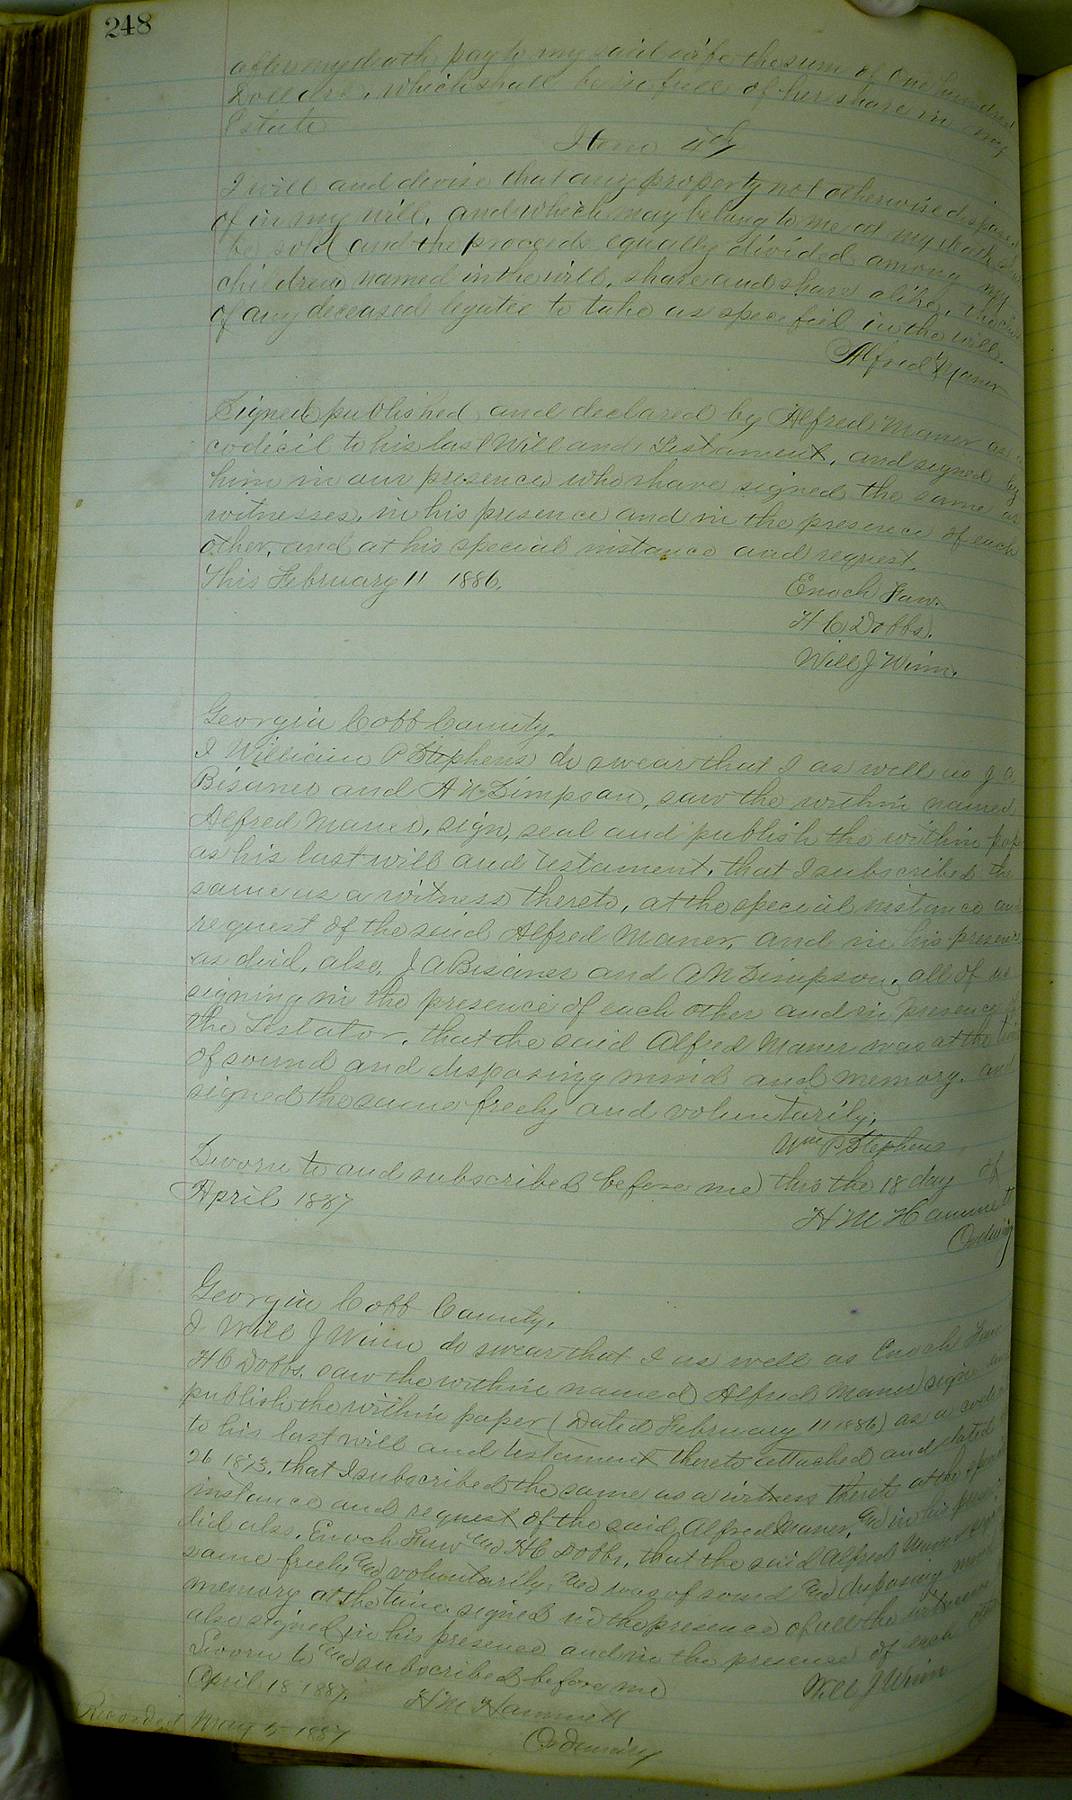 248
after my death pay to my said wife the sum of One hundred
Dollars, which shall be in full of her share in my
Estate
Item 4th
I will and devise that any property not otherwise disposed
of in my will, and which may belong to me at my death shall
be sold and the proceeds equally divided among my
children named in the will, share and share alike, the
of any deceased legatee to take as specified in the will.
Alfred Maner
Signed published and declared by Alfred Maner as a
codicil to his last Will and Testament, and signed by
him in our presence who have signed the same as
witnesses, in his presence and in the presence of each
other, and at his special instance and request.
This February 11 1886.
Enoch Faw.
H C Dobbs.
Will J Winn.
Georgia Cobb County.
I William P Stephens do swear that I as well as J A
Bisaner and A N Simpson, saw the within named
Alfred Maner, sign, seal and publish the within pap
as his last will and testament, that I subscribed the
same as a witness thereto, at the special instance and
request of the said Alfred Maner, and in his presence
as did, also, J A Bisaner and A N Simpson, all of us
signing in the presence of each other and in presence of
the Testator, that the said Alfred Maner was at the time
of sound and disposing mind and memory, and
signed the same freely and voluntarily,
Wm P Stephens
Sworn to and subscribed before me this the 18 day of
April 1887
H M Hammett
Ordinary
Georgia Cobb County.
I Will J Winn do swear that I as well as Enoch Faw
H C Dobbs, saw the within named Alfred Maner sign and
publish the within paper (Dated February 11 1886) as a codicil
to his last will and testament thereto attached and dated
26 1873, that I subscribed the same as a witness thereto at the special
instance and request of the said Alfred Maner, and in his presence
did also, Enoch Faw and H C Dobbs, that the said Alfred Maner
same freely and voluntarily, and was of sound and disposing mind
memory at the time signed in the presence of all the witnesses
also signed in his presence and in the presence of each other
Sworn to and subscribed before me
Will J Winn
April 18 1887.
H M Hammett
Ordinary
Recorded May 5 1887